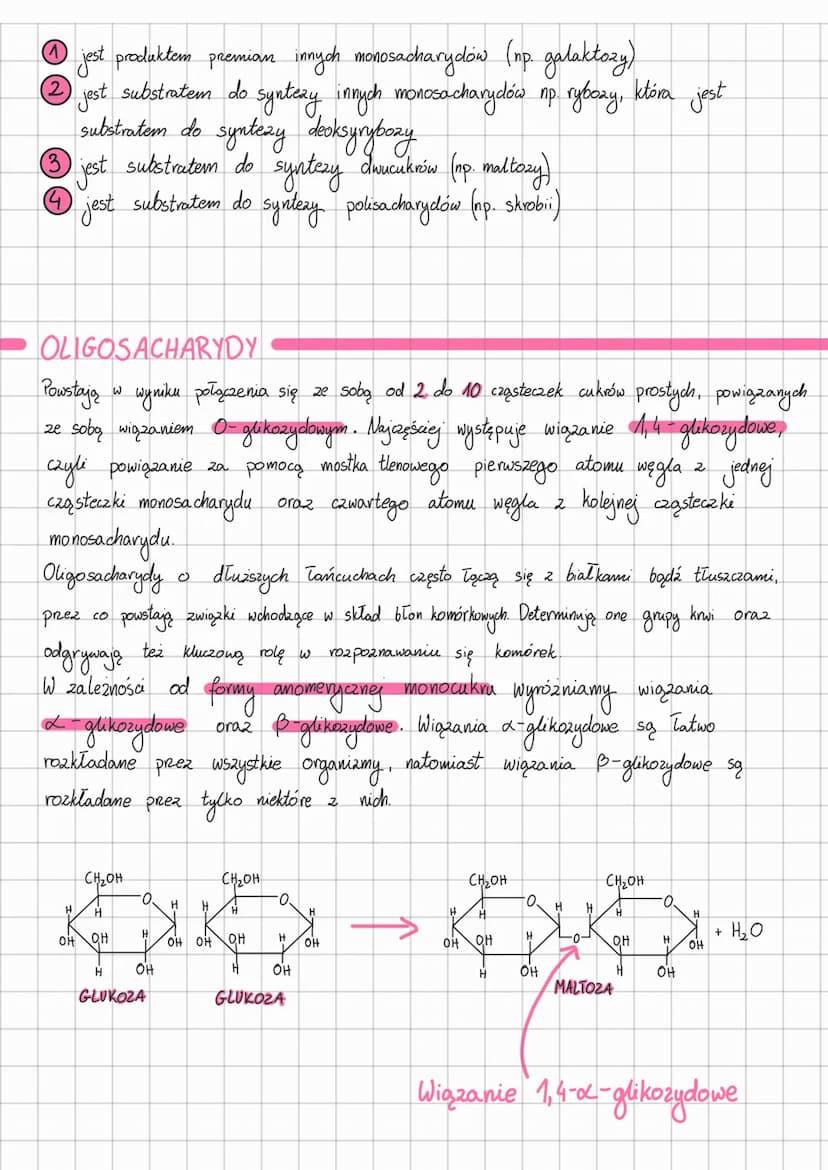 1 jest produktem przemian innych monosacharydów (np. galaktozy)
2 jest substratem do syntezy innych monosacharydów np. rybozy, która jest
substratem do syntezy deoksyrybozy
3 jest substratem do syntezy dwucukrów (np. maltozy)
4 jest substratem do syntezy polisacharydów (np. skrobii)
OLIGOSACHARYDY
Powstają w wyniku połączenia się ze sobą od 2 do 10 cząsteczek cukrów prostych, powiązanych
ze sobą wiązaniem O-glikozydowym. Najczęściej występuje wiązanie 1,4-glikozydowe,
czyli powiązanie za pomocą mostka tlenowego pierwszego atomu węgla z jednej
cząsteczki monosacharydu oraz czwartego atomu węgla z kolejnej cząsteczki
monosacharydu.
Oligosacharydy o dłuższych łańcuchach często łączą się z białkami bądź tłuszczami,
przez co powstają związki wchodzące w skład błon komórkowych. Determinują one grupy krwi oraz
odgrywają też kluczową rolę w rozpoznawaniu się komórek.
W zależności od formy anomerycznej monocukru wyróżniamy wiązania
α-glikozydowe oraz β-glikozydowe. Wiązania α-glikozydowe są łatwo
rozkładane przez wszystkie organizmy, natomiast wiązania β-glikozydowe są
rozkładane przez tylko niektóre z nich.
CH₂OH CH₂OH CH₂OH CH₂OH
O O O O
H H H H H H H H H H H H
OH OH H OH OH OH H OH OH OH H O OH H OH + H₂O
H OH H OH H OH H OH
GLUKOZA GLUKOZA MALTOZA
Wiązanie 1,4-α-glikozydowe